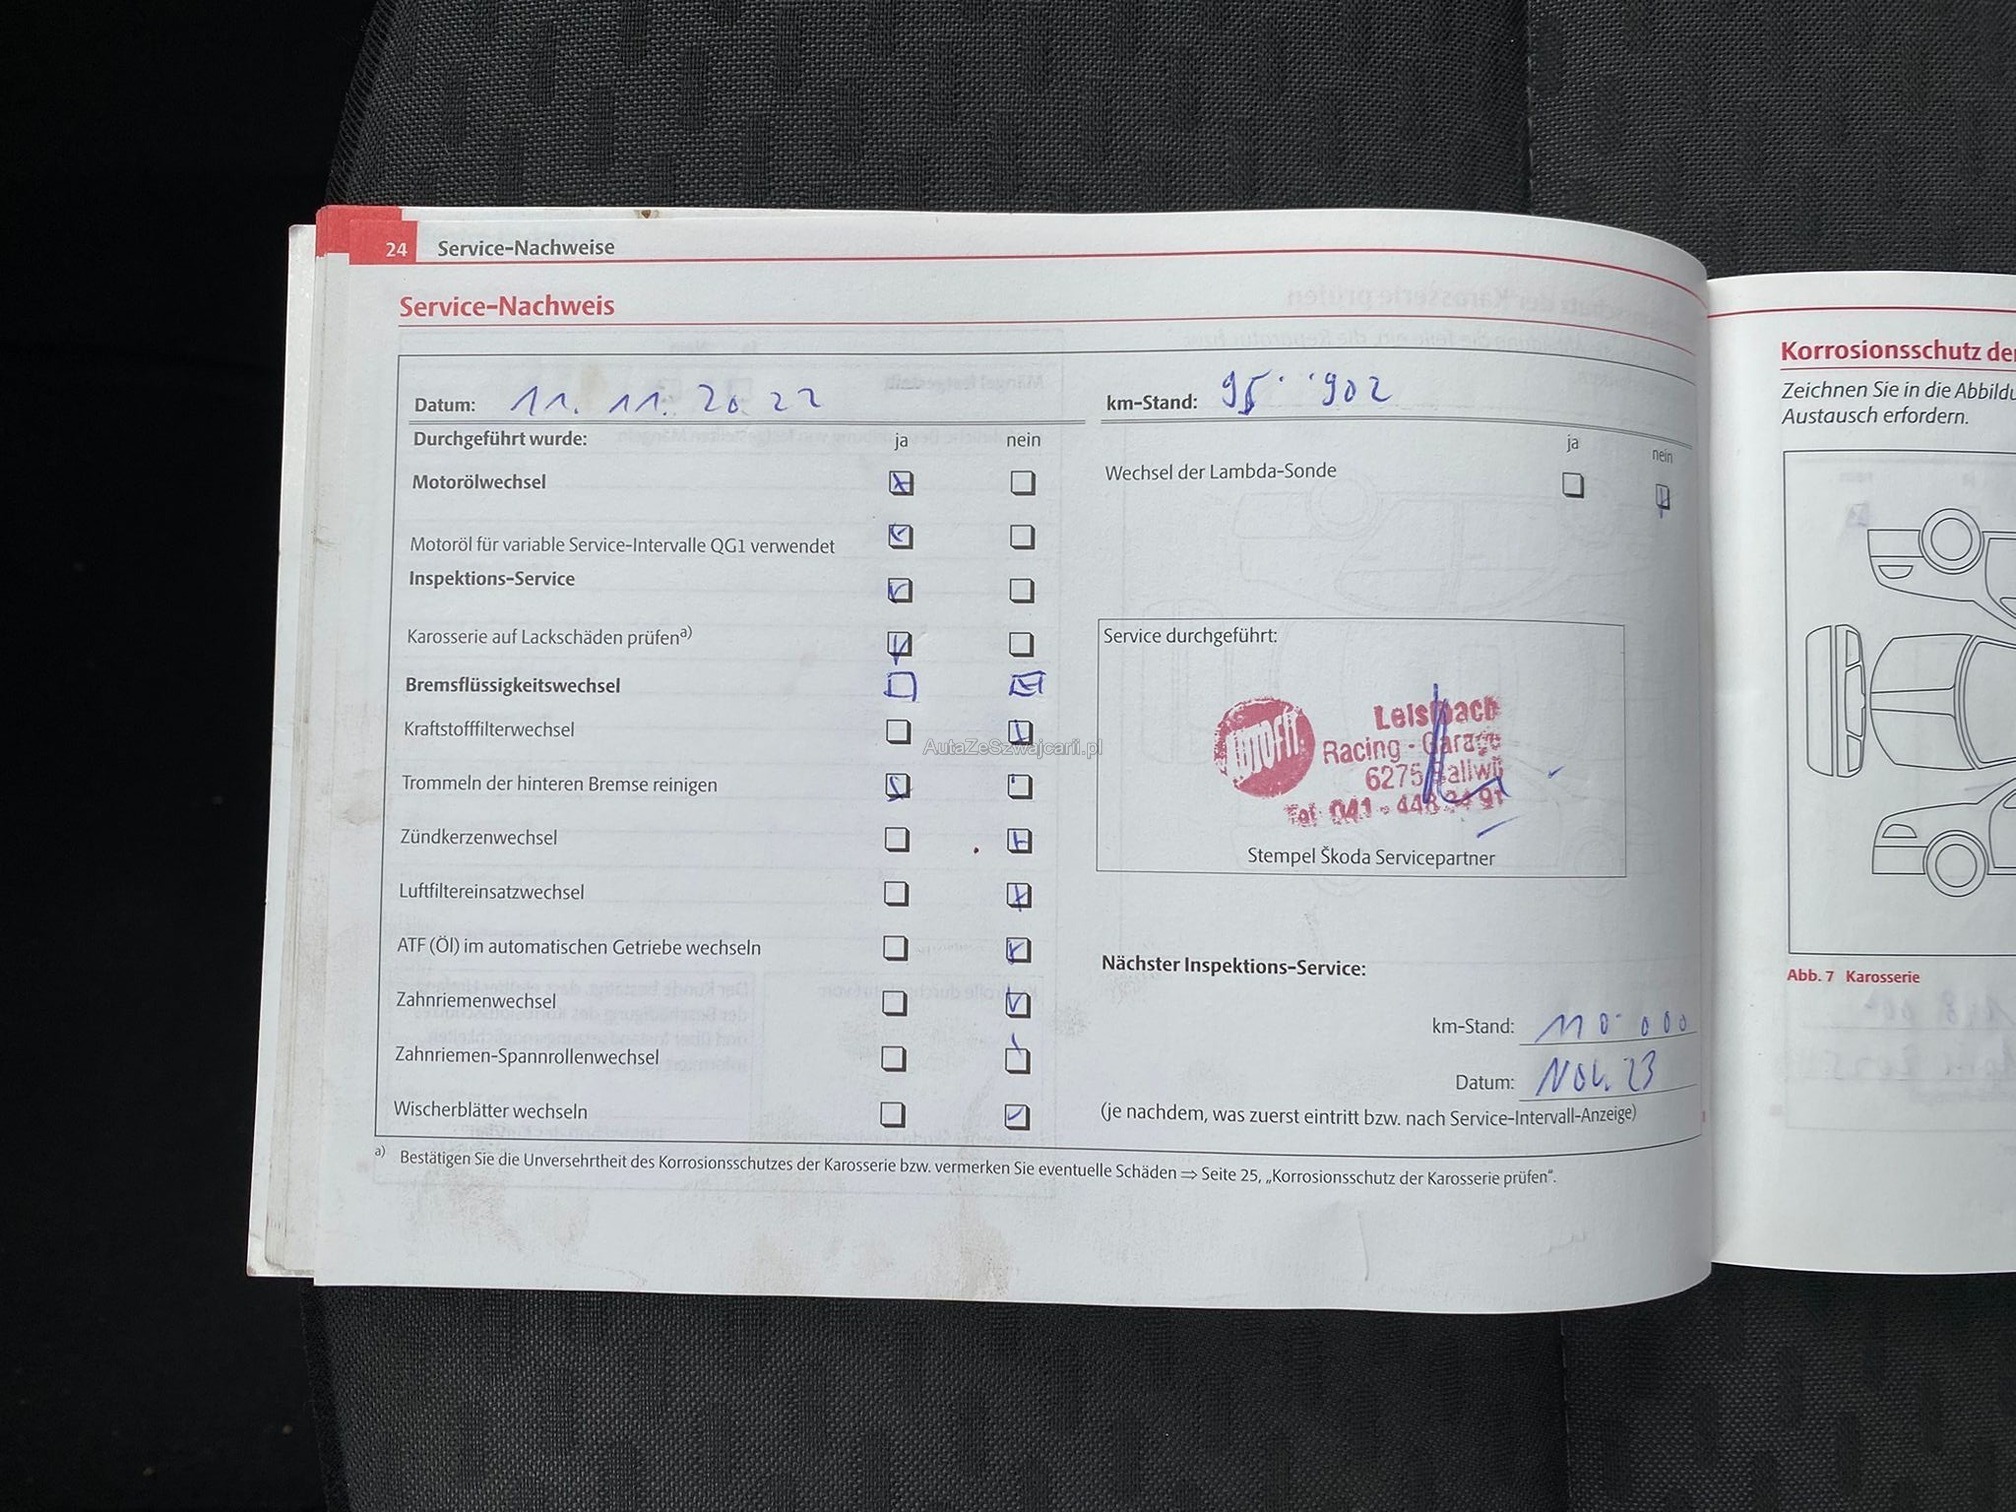 24 Service-Nachweise
Service-Nachweis
Datum: 11. 11. 2022
km-Stand: 95' '902
Durchgeführt wurde: ja nein
Motorölwechsel
Motoröl für variable Service-Intervalle QG1 verwendet
Inspektions-Service
Karosserie auf Lackschäden prüfen a)
Bremsflüssigkeitswechsel
Kraftstofffilterwechsel
Trommeln der hinteren Bremse reinigen
Zündkerzenwechsel
Luftfiltereinsatzwechsel
ATF (Öl) im automatischen Getriebe wechseln
Zahnriemenwechsel
Zahnriemen-Spannrollenwechsel
Wischerblätter wechseln
ja nein
Wechsel der Lambda-Sonde
Service durchgeführt:
autofit
Racing - Garage
6275 Ballwil
Tel. 041 - 448
Stempel Škoda Servicepartner
Nächster Inspektions-Service:
km-Stand: 110' 000
Datum: Nov. 23
(je nachdem, was zuerst eintritt bzw. nach Service-Intervall-Anzeige)
a) Bestätigen Sie die Unversehrtheit des Korrosionsschutzes der Karosserie bzw. vermerken Sie eventuelle Schäden ⇒ Seite 25, „Korrosionsschutz der Karosserie prüfen“.
AutaZeSzwajcarii.pl
Korrosionsschutz
Zeichnen Sie in die
Austausch erfordern.
Abb. 7 Karosserie